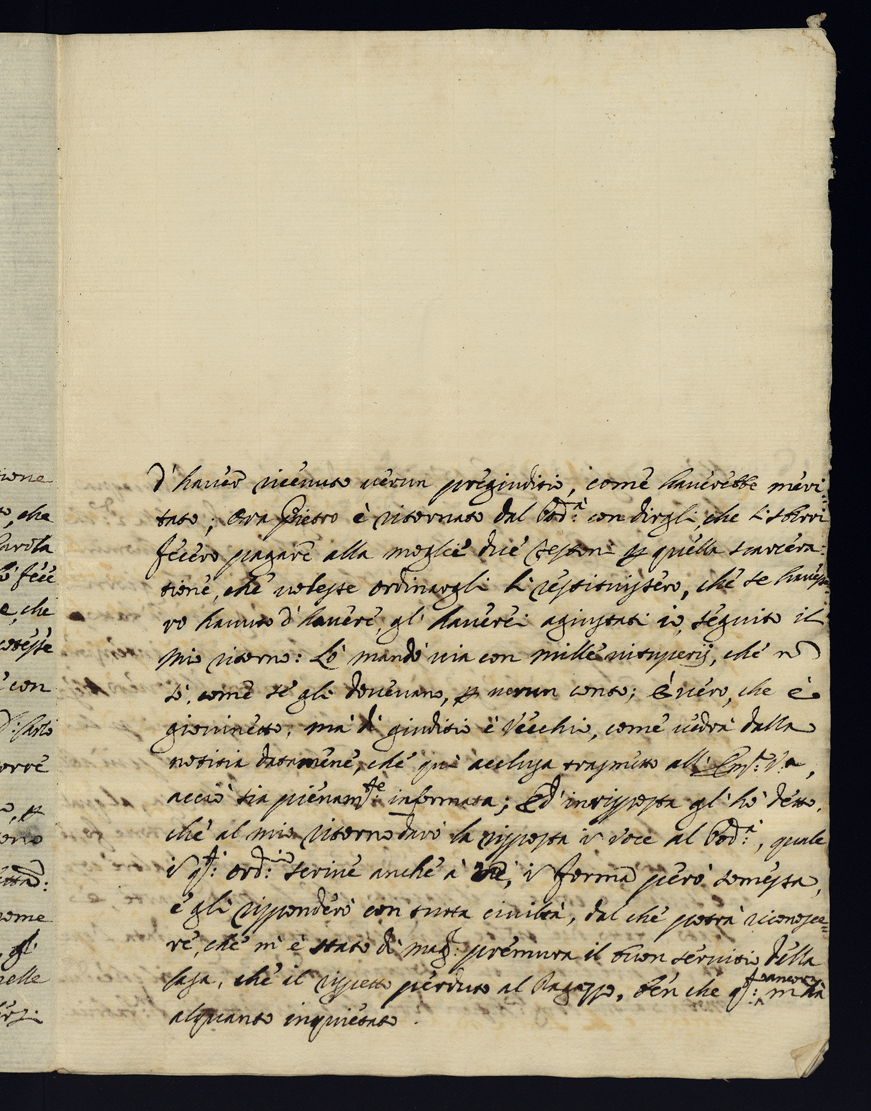 d'haver ricevuto verun pregiuditio, come haverebbe meri-
tato; Ora Pietro è ritornato dal Pod.à con dirgli, che li sbirri
fecero pagare alla moglie due Testoni p quella scarcera-
tione, che volesse ordinargli li restituissero, che se havesse-
ro havuto d'havere, gl'haverei agiustati io, seguito il
mio ritorno: Lo mandò via con mille vituperij, che nō
sò, come se gli dovevano, p verun conto; è vero, che è
giovinetto, mà di giuditio è Vecchio, come vedrà dalla
notitia datamene, che quì acclusa trasmetto all' Em.a V.a,
acciò sia pienam.te informata; Ed in risposta gl'hò detto,
che al mio ritorno darò la risposta in voce al Pod.à, quale
in q.to ord.rio scrive anche à me, in forma però somessa,
e gli risponderò con tutta civiltà, dal che potrà riconosce-
re, che m'è stato di mag.r premura il buon servitio della
Casa, che il rispetto perduto al Ragazzo, ben che q.to ancora m'hà
alquanto inquietato.
ione
, che
fece
e, che
con
orre
ome
nelle